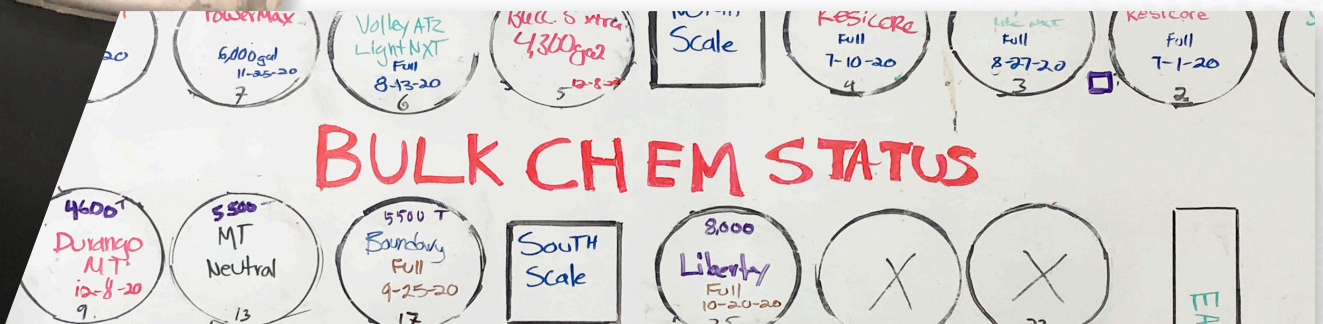 PowerMax
6,000gal
11-25-20
7
Volley ATZ
Light NXT
Full
8-13-20
6
4,300gal
5
Scale
Resicore
Full
7-10-20
4
Full
8-27-20
3
Resicore
Full
7-1-20
2
20
BULK CHEM STATUS
4600 T
Durango
MT
12-8-20
9
5500
MT
Neutral
13
5500 T
Boundary
Full
9-25-20
17
SOUTH
Scale
8,000
Liberty
Full
10-20-20
X
X
EA